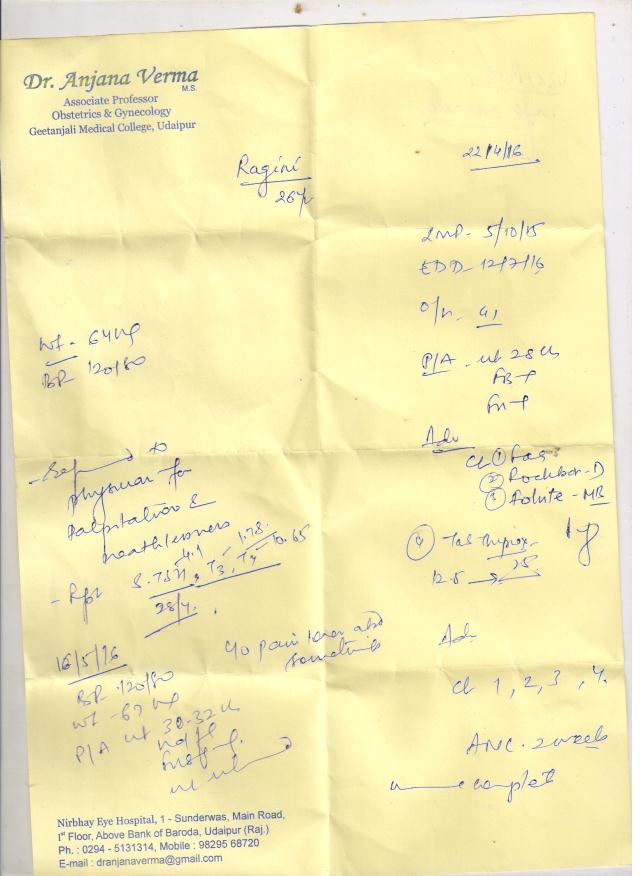 Dr. Anjana Verma
M.S.
Associate Professor
Obstetrics & Gynecology
Geetanjali Medical College, Udaipur
22/4/16
Ragini
26y
LMP - 5/10/15
EDD - 12/7/16
Wt - 64 kg
BP 120/80
P/A - ut 28
Adv
to
physician for
Palpitation &
breathlessness
- Rpt S. TSH, T3, T4
4.1 1.78 10.65
28/4
① Fas
②
③ - MB
④ Tab Thyrox
12.5 → 25
16/5/16
BP 120/80
Wt - 67 kg
P/A ut 30-32
c/o pain lower abd
sometimes
Adv
1, 2, 3, 4
ANC - 2 week
complete
Nirbhay Eye Hospital, 1 - Sunderwas, Main Road,
Ist Floor, Above Bank of Baroda, Udaipur (Raj.)
Ph. : 0294 - 5131314, Mobile : 98295 68720
E-mail : dranjanaverma@gmail.com